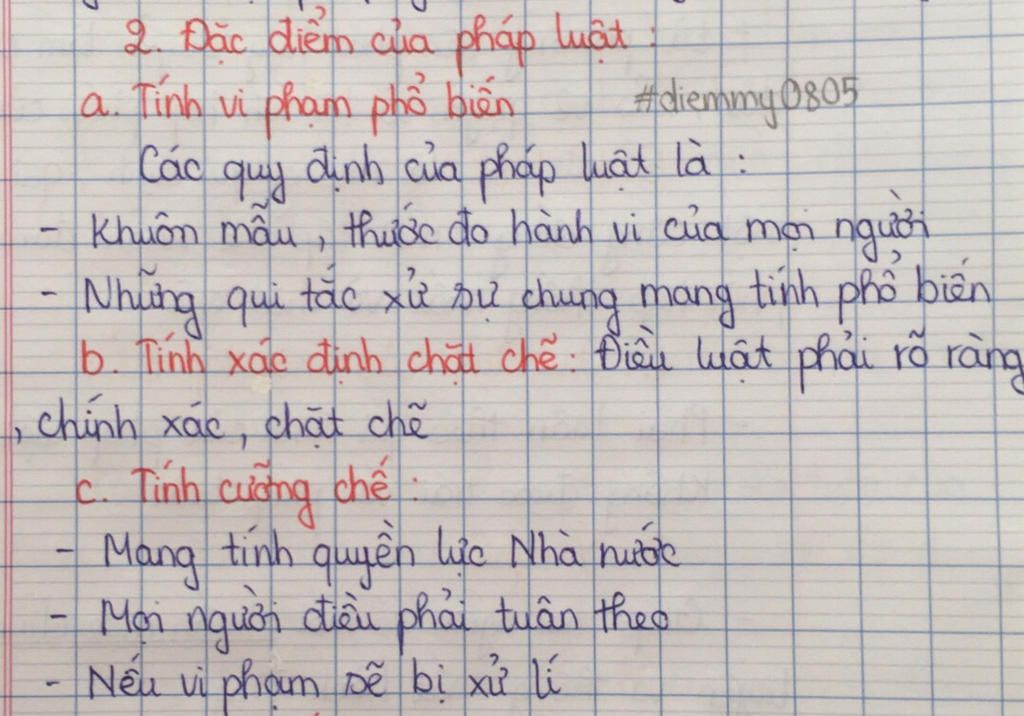 2. Đặc điểm của pháp luật :
a. Tính vi phạm phổ biến #diemmy0805
Các quy định của pháp luật là :
- Khuôn mẫu, thước đo hành vi của mọi người
- Những qui tắc xử sự chung mang tính phổ biến
b. Tính xác định chặt chẽ: Điều luật phải rõ ràng
, chính xác, chặt chẽ
c. Tính cưỡng chế :
- Mang tính quyền lực Nhà nước
- Mọi người điều phải tuân theo
- Nếu vi phạm sẽ bị xử lí